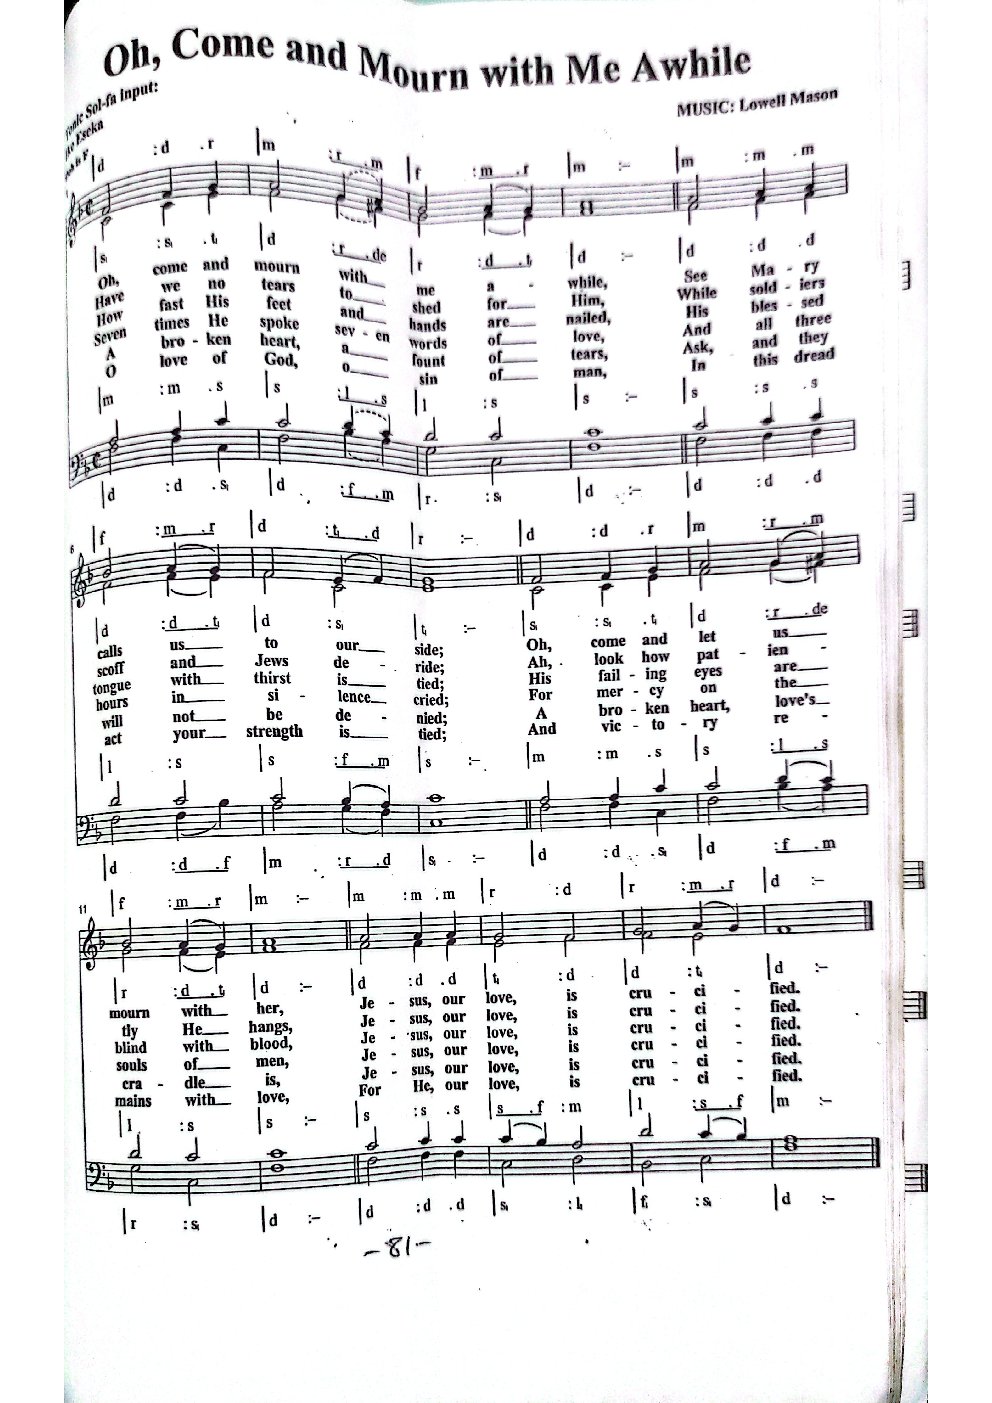 Oh, Come and Mourn with Me Awhile
Sol-fa Input:
MUSIC: Lowell Mason
|d :d .r |m :r .m |f :m .r |m :– |m :m .m
|s, :s, .t, |d :r .de |r :d .t, |d :– |d :d .d
Oh, come and mourn with me a - while, See Ma - ry
Have we no tears to shed for Him, While sold - iers
How fast His feet and hands are nailed, His bles - sed
Seven times He spoke sev - en words of love, And all three
A bro - ken heart, a fount of tears, Ask, and they
O love of God, o sin of man, In this dread
|m :m .s |s :l .s |l :s |s :– |s :s .s
|d :d .s, |d :f .m |r :s, |d :– |d :d .d
6
|f :m .r |d :t, .d |r :– |d :d .r |m :r .m
|d :d .t, |d :s, |t, :– |s, :s, .t, |d :r .de
calls us to our side; Oh, come and let us
scoff and Jews de - ride; Ah, look how pat - ien -
tongue with thirst is tied; His fail - ing eyes are
hours in si - lence cried; For mer - cy on the
will not be de - nied; A bro - ken heart, love's
act your strength is tied; And vic - to - ry re -
|l :s |s :f .m |s :– |m :m .s |s :l .s
|d :d .f |m :r .d |s, :– |d :d .s, |d :f .m
11
|f :m .r |m :– |m :m .m |r :d |r :m .r |d :–
|r :d .t, |d :– |d :d .d |t, :d |d :t, |d :–
mourn with her, Je - sus, our love, is cru - ci - fied.
tly He hangs, Je - sus, our love, is cru - ci - fied.
blind with blood, Je - sus, our love, is cru - ci - fied.
souls of men, Je - sus, our love, is cru - ci - fied.
cra - dle is, Je - sus, our love, is cru - ci - fied.
mains with love, For He, our love, is cru - ci - fied.
|l :s |s :– |s :s .s |s .f :m |l :s .f |m :–
|r :s, |d :– |d :d .d |s, :l, |f, :s, |d :–
-81-